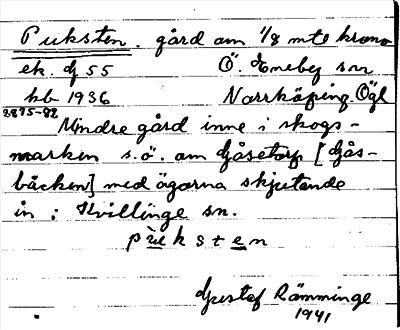 Puksten. gård om 1/8 mtl krono
ek. bl 55 Ö. Eneby sn
kb 1936 Norrköping. Ögl
2875-82
Mindre gård inne i skogs-
marken s.ö. om Gåsetorp [Gås-
bäcken] med ägorna skjutande
in i Kvillinge sn.
pùksten
Gustaf Rämminge
1941